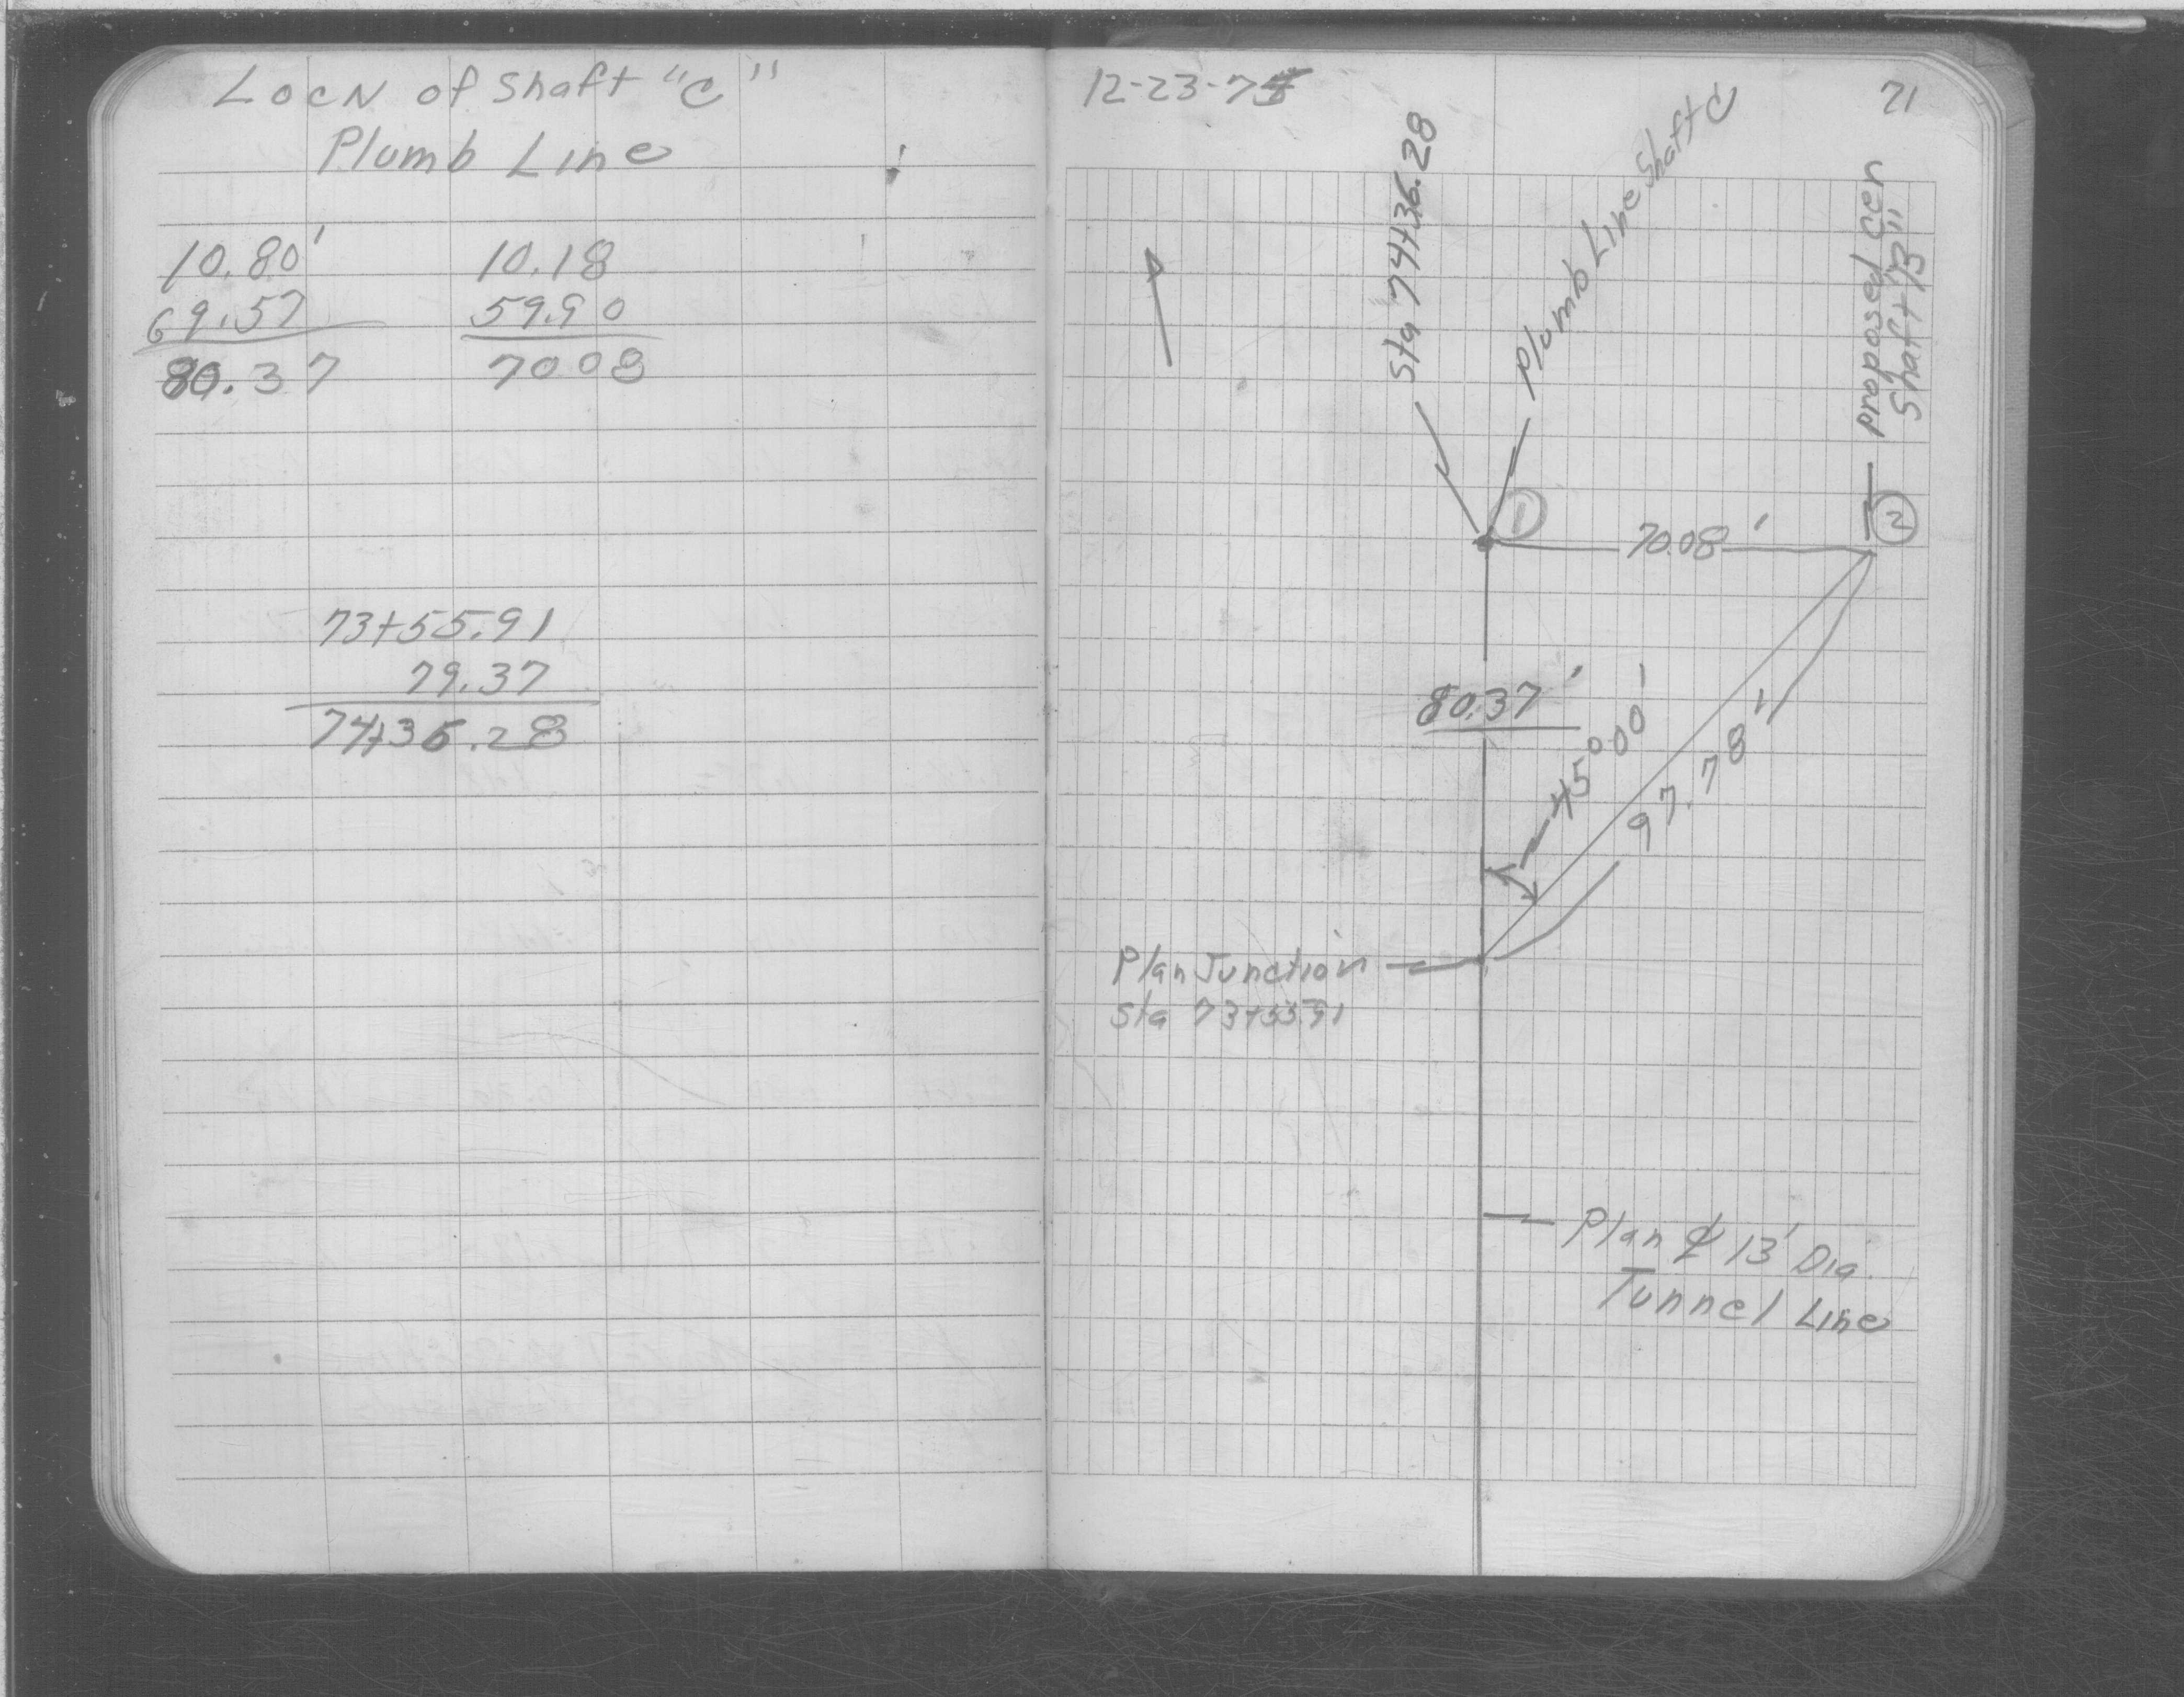 Locn of Shaft "C"
Plumb Line
10.80'
69.57
80.37
10.18
59.90
70.08
73+55.91
79.37
74+36.28
12-23-75
71
Sta 74+36.28
Plumb Line Shaft C
proposed Cen
Shaft "B"
1
2
70.08'
80.37'
45°00'
97.78'
Plan Junction
Sta 73+55.91
Plan ℄ 13' Dia.
Tunnel Line